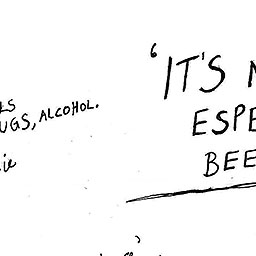 LS
UGS, ALCOHOL.
ie
'IT'S
ESPE
BEE